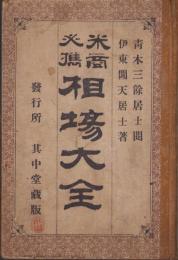 青木三餘居士閲
伊東閑天居士著
米商
必携
相塲大全
發行所　其中堂藏版